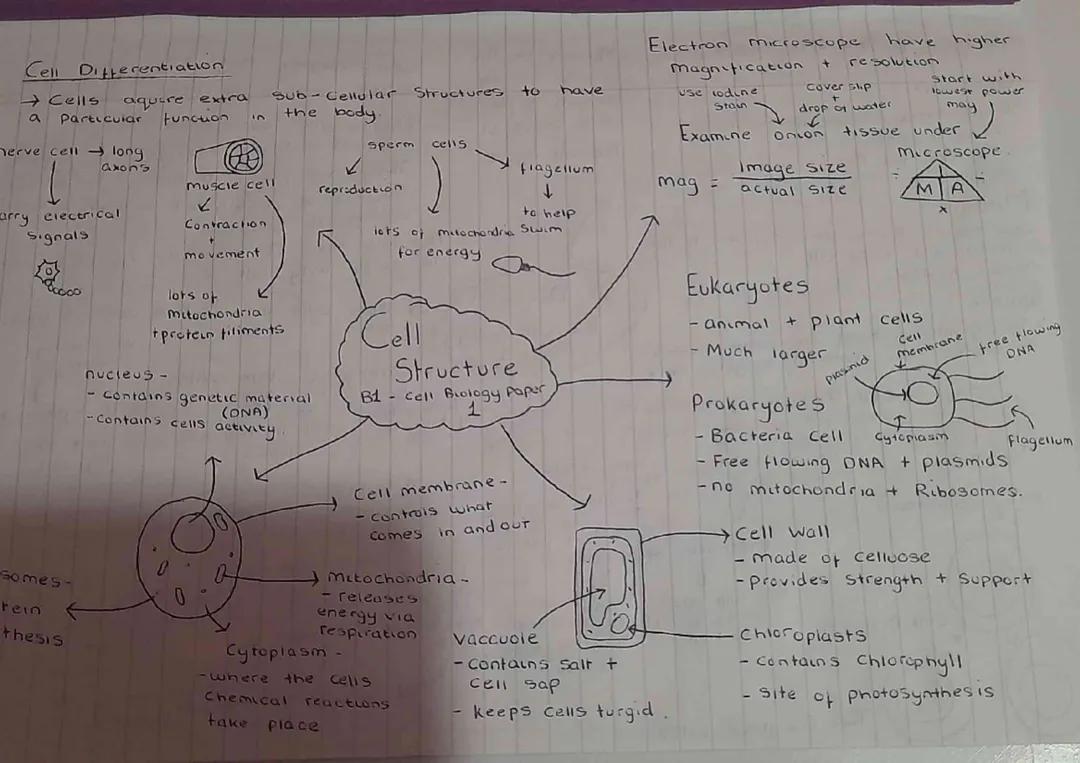 Cell Differentiation
→ Cells aquire extra sub-cellular structures to have
a particular function in the body.
nerve cell → long
axons
arry electrical
signals
muscle cell
Contraction
+
movement
lots of
mitochondria
+ protein filiments
sperm cells
reproduction
lots of mitochondria
for energy
flagellum
to help
swim
Electron microscope have higher
magnification + resolution
use iodine
stain
cover slip
+
drop of water
start with
lowest power
mag
Examine onion tissue under
microscope.
mag = Image size
actual size
÷ ÷
M A
x
Cell
Structure
B1 - Cell Biology Paper
1
Eukaryotes
- animal + plant cells
- Much larger
Prokaryotes
- Bacteria cell
- Free flowing DNA + plasmids
- no mitochondria + Ribosomes.
plasmid
cell
membrane
free flowing
DNA
cytoplasm
flagellum
nucleus -
- contains genetic material
(DNA)
- contains cells activity.
Cell membrane -
- controls what
comes in and out
Mitochondria -
- releases
energy via
respiration
Cytoplasm -
- where the cells
Chemical reactions
take place
somes -
tein
thesis
Vaccuole
- contains salt +
cell sap
- keeps cells turgid.
Cell Wall
- made of celluose
- provides strength + support
Chloroplasts
- contains Chlorophyll
- site of photosynthesis